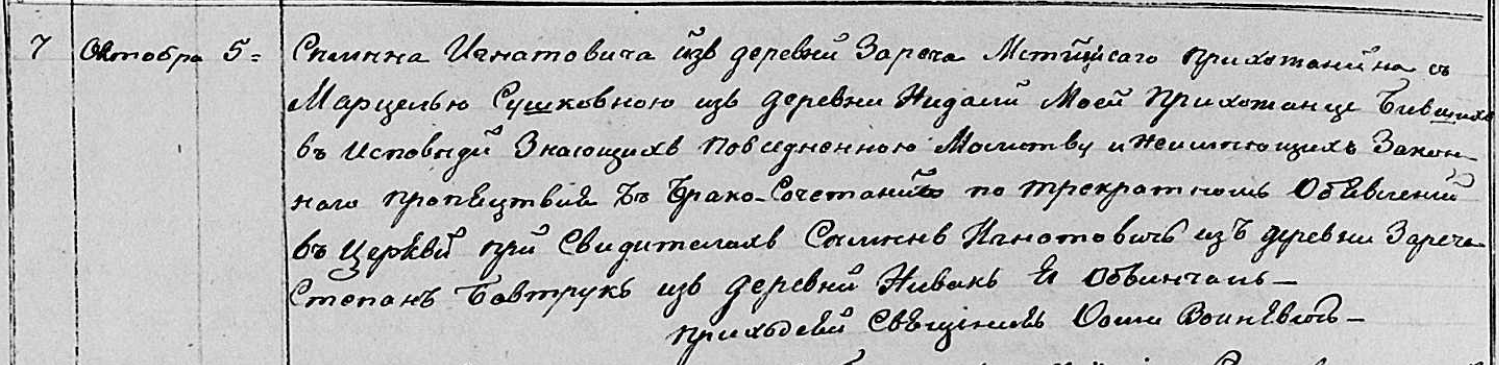 7 Октобра 5= Симина Игнатовича изъ деревнй Зареча Мстийскаго прихожанийна съ
Марцелью Сушковною изъ деревни Нидали Моей Прихожанце Бившихъ
въ исповѣди Знающихъ повседненною Молитву и неимѣющихъ Закон-
наго препяцтвия Въ Брако-Сочетаний по трекратномъ Объявлений
въ Церквй прй Свидителахъ Симинъ Игнатовичъ изъ деревни Зареча
Степанъ Бавтрукъ изъ деревнй Нивакъ Я Обвинчалъ—
приходскй Священикъ Войневичъ—